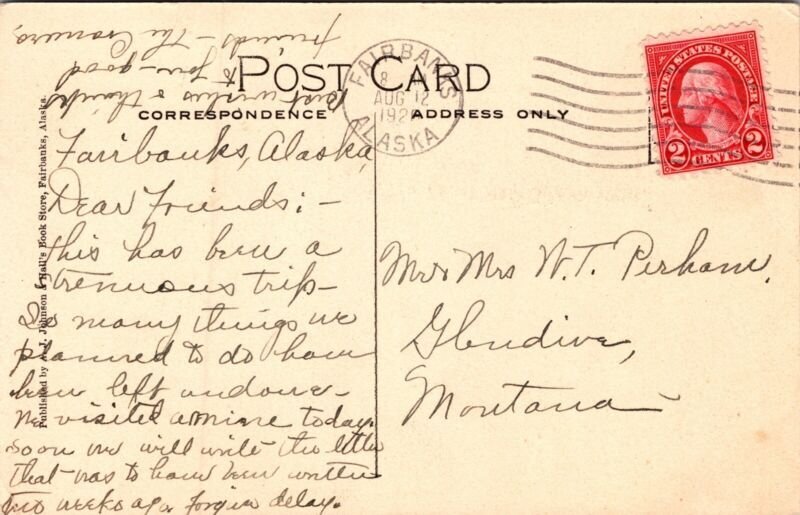 POST CARD
CORRESPONDENCE
ADDRESS ONLY
FAIRBANKS
8
AUG 12
192
ALASKA
UNITED STATES POSTAGE
2 CENTS 2
Published by A. J. Johnson & Hall's Book Store, Fairbanks, Alaska.
Fairbanks, Alaska,
Dear Friends:-
this has been a
strenuous trip-
So many things we
planned to do have
been left undone-
we visited a mine today.
soon we will write the letter
that was to have been written
two weeks ago forgive delay.
best wishes & thanks
to you - good
friends - The Cramers,
Mr & Mrs W. T. Perham,
Glendive,
Montana